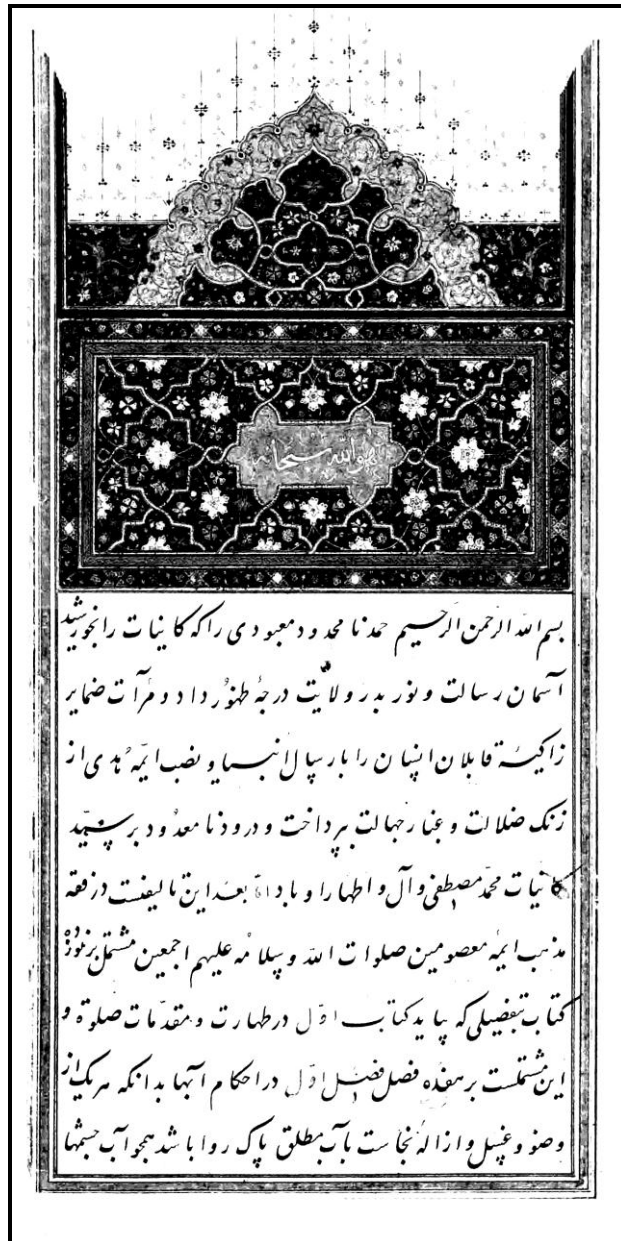 هو الله سبحانه
بسم الله الرحمن الرحیم حمد نامحدود معبودی را که کاینات را بخورشید
آسمان رسالت و نور بدر ولایت درجهٔ ظهور داد و مرآت ضمایر
زاکیهٔ قابلان انسان را بارسال انبیا و نصب ایمهٔ هدی از
زنک ضلالت و غبار جهالت بپرداخت و درود نامعدود بر سید
کاینات محمد مصطفی و آل و اطهار او باد اما بعد این تالیفیست در فقه
مذهب ایمه معصومین صلوات الله و سلامه علیهم اجمعین مشتمل بر
کتاب بتفصیلی که بیاید کتاب اول در طهارت و مقدمات صلوة و
این مشتملست بر هفده فصل فصل اول در احکام آبها بدانکه هر یک از
وضو و غسل و ازالهٔ نجاست بآب مطلق پاک روا باشد همچو آب چشمها